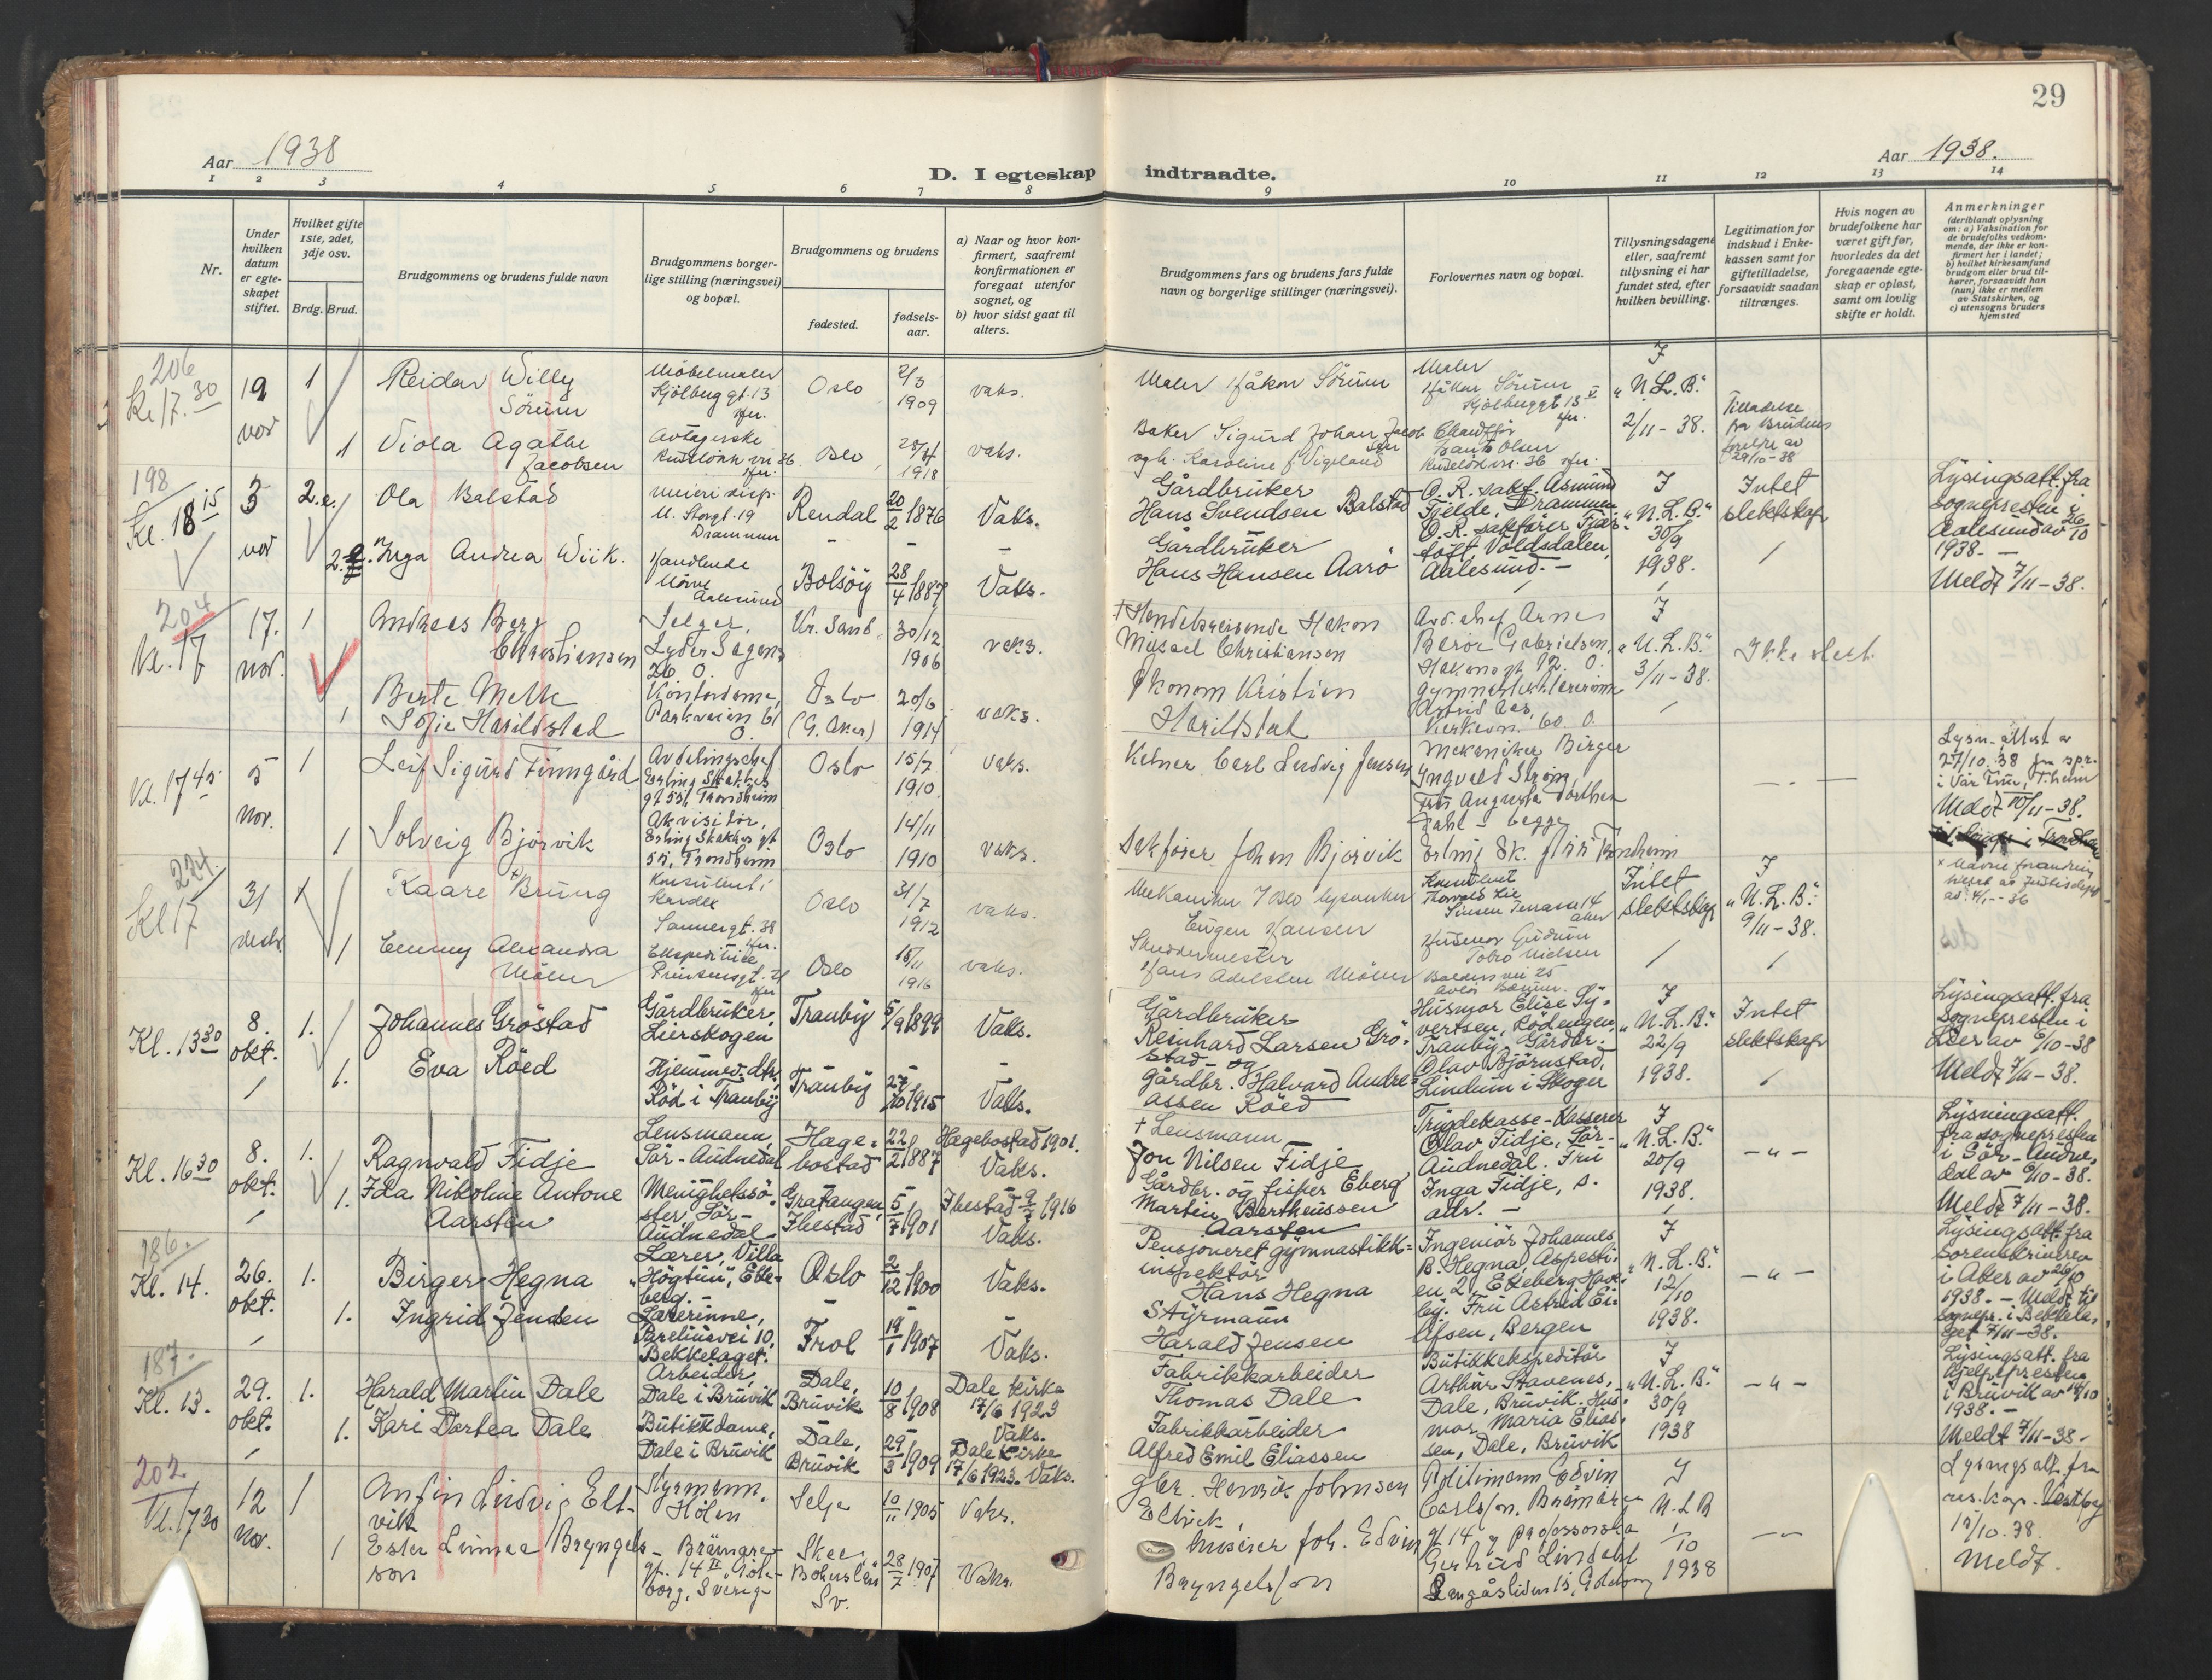 29
Aar 1938
Aar 1938.
D. I egteskap indtraadte.
1 2 3 4 5 6 7 8 9 10 11 12 13 14
Nr.
Under hvilken datum er egteskapet stiftet.
Hvilket gifte 1ste, 2det, 3dje osv.
Brdg. Brud.
Brudgommens og brudens fulde navn
Brudgommens borgerlige stilling (næringsvei) og bopæl.
Brudgommens og brudens
fødested.
fødselsaar.
a) Naar og hvor konfirmert, saafremt konfirmationen er foregaat utenfor sognet, og
b) hvor sidst gaat til alters.
Brudgommens fars og brudens fars fulde navn og borgerlige stillinger (næringsvei).
Forlovernes navn og bopæl.
Tillysningsdagene eller, saafremt tillysning ei har fundet sted, efter hvilken bevilling.
Legitimation for indskud i Enkekassen samt for giftetilladelse, forsaavidt saadan tiltrænges.
Hvis nogen av brudefolkene har været gift før, hvorledes da det foregaaende egteskap er opløst, samt om lovlig skifte er holdt.
Anmerkninger
(deriblandt oplysning om: a) Vaksination for de brudefolks vedkommende, der ikke er konfirmert her i landet;
b) hvilket kirkesamfund brudgom eller brud tilhører, forsaavidt han (hun) ikke er medlem av Statskirken, og
c) utensogns bruders hjemsted
206
Kl 17.30
19 nov
1
Reidar Willy Sørum
Møbelmaler
Kjølberggt. 13
Oslo
2/3 1909
vaks.
Maler Håkon Sørum
Maler Håkon Sørum
"N.L.B."
2/11-38.
1
Viola Agathe Jacobsen
Oslo
1918
vaks.
Baker Sigurd Johan Jacobsen
Olsen
Tilladelse fra Brudens foreldre av 29/10-38
198
Kl. 18 15
5 nov
2.e.
Ola Balstad
Meieridisp.
St. Storgt. 19
Drammen
Rendal
20/2 1876
Vaks.
Gårdbruker
Hans Svendsen Balstad
O.R. sakf. Asmund
Fjelde, Drammen
"N.L.B."
30/9
1938.
Intet slektskap
Lysingsatt. fra
sognepresten i
Aalesund av 26/10
1938. -
Meldt 7/11-38.
Inga Andrea Wiik.
Handlende
Aalesund
Bolsøy
28/4 1887
Vaks.
Gårdbruker
Hans Hansen Aarø
O.R. sakfører
Voldsdalen,
Aalesund. -
204
Kl. 17
17. nov.
1
Andreas Berg Christiansen
Selger,
Lyder Sagens
26 O.
Kr. Sand
30/12 1906
vaks.
+ Handelsreisende Hakon
Misael Christiansen
Avd. chef Arne
Gabrielsen,
"N.L.B."
3/11-38.
Ikke slekt.
1
Berte Melk
Sofie Harildstad
Kontordame,
Parkveien 61
O.
Oslo
(G. Aker)
20/6 1914
vaks.
Økonom Kristian
Harildstad
Kirkevn. 60. O.
Kl. 17 45
5 nov.
1
Leif Sigurd Finngård
Avdelingschef
Erling Skakkes
gt 53, Trondheim
Oslo
15/7 1910
vaks.
Kelner Carl Ludvig Jensen
Mekaniker Birger
Ingvald Strøm,
Fru Augusta Dorthea
Dahl - begge
Lysn.attest av
27/10.38 fra spr.
i Vår Frue, T.heim
Meldt 10/11-38.
1
Solveig Bjørvik
Akvisitør,
Erling Skakkes gt
53, Trondheim
Oslo
14/11 1910
vaks.
Sakfører Johan Bjørvik
224.
Kl 17
31 desbr
1
Kaare Brung
Konsulent i
Kardex
Sannergt. 38
Oslo
31/7 1912
vaks.
Mekaniker
Eugen Hansen
Intet slektskap
"N.L.B."
9/11-38.
1
Emmy Alexandra
Ekspeditrise
Prinsensgt. 21
Oslo
15/11 1916
vaks.
Skreddermester
Husmor Gudrun
Tobro Nielsen
Kl. 13 30
8. okt.
1.
Johannes Gröstad
Gårdbruker,
Lierskogen
Tranby
5/9 1899
Vaks.
Gårdbruker
Reinhard Larsen Grö-
stad - og
Husmor Elise Sy-
vertsen, Rödengen,
Tranby, Gårdbr.
Olav Björnstad,
Lindum i Skoger
"N.L.B."
22/9
1938.
Intet
slektskap
Lysingsatt. fra
sognepresten i
Lier av 6/10-38
Meldt 7/11-38.
1.
Eva Röed
Hjemmev. dtr,
Röd i Tranby
Tranby
27/10 1915
Vaks.
gårdbr. Halvard Andre-
assen Röed
Kl. 16 30
8. okt.
1.
Ragnvald Fidje
Lensmann,
Sör-Audnedal
Hægebostad
22/2 1887
Hægebostad 1901.
Vaks.
+ Lensmann
Jon Nilsen Fidje
Trygdekasse-Kasserer
Olav Fidje, Sör-
Audnedal. Fru
Inga Fidje, s.
adr. -
"N.L.B."
20/9
1938.
- " -
Lysningsatt.
fra sognepresten
i Sör-Audne-
dal av 6/10-38.
Meldt 7/11-38.
1.
Ida Nikoline Antone
Aarsten
Menighetssö-
ster, Sör-
Audnedal
Gratangen,
Ibestad
5/7 1901
Ibestad 9/7 1916
Vaks.
Gårdbr. og fisker Eberg
Martin Bertheussen
Aarsten
186.
Kl. 14.
26. okt.
1.
Birger Hegna
Lærer, Villa
"Högtun", Eke-
berg. -
Oslo
2/12 1900
Vaks.
Pensjoneret gymnastikk-
inspektör
Hans Hegna
Ingeniör Johannes
B. Hegna, Aspesti-
en 2, Ekeberg Hage-
by. Fru Astrid Ei-
lifsen, Bergen
"N.L.B."
12/10
1938.
- " -
Lysingsatt. fra
sorenskriveren
i Aker av 26/10
1938. - Meldt til
sognepr. i Bekkela-
get 7/11-38.
1.
Ingrid Jensen
Lærerinne,
Breliusvei 10,
Bekkelaget.
Frol
19/1 1907
Vaks.
Styrmann
Harald Jensen
187.
Kl. 13.
29. okt.
1.
Harald Martin Dale
Arbeider,
Dale i Bruvik
Dale,
Bruvik
10/8 1908
Dale kirke
17/6 1923
Vaks.
Fabrikkarbeider
Thomas Dale
Butikkekspeditör
Arthur Stavenes,
Dale, Bruvik. Hus-
mor Maria Elias-
sen, Dale, Bruvik
"N.L.B."
30/9
1938
- " -
Lysingsatt. fra
hjelpepresten
i Bruvik av 14/10
1938. -
Meldt 7/11-38.
1.
Kari Dortea Dale
Butikkdame,
Dale i Bruvik
Dale,
Bruvik
29/3 1909
Dale kirke
17/6 1923. Vaks.
Fabrikkarbeider
Alfred Emil Eliassen
202.
Kl. 17 30
12 nov.
1
Anfin Ludvig Elt-
vik
Styrmann,
Hölen
Selje
10/11 1905
Vaks.
Gbr. Henrik Johnsen
Eltvik,
Politimann Edvin
Carlsson, Brämare-
gt 14
N.L.B
1/10
1938
Lysingsatt. fra
res. kap. Vestby
15/10.38.
Meldt.
1
Ester Linnea Bryngels-
son
Brämare-
gt. 14 II, Göte-
borg, Sverige
Skee
Bohuslän
Sv.
28/7 1907
Vaks.
Joh. Edvin
Bryngelsson
Gertrud Lindahl